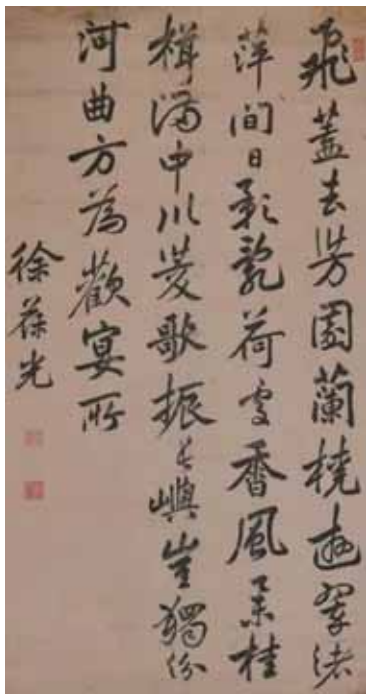 飛蓋去芳園蘭橈遊翠渚
萍間日彩亂荷處香風舉桂
楫滿中川菱歌振長嶼豈獨汾
河曲方為歡宴所
徐葆光